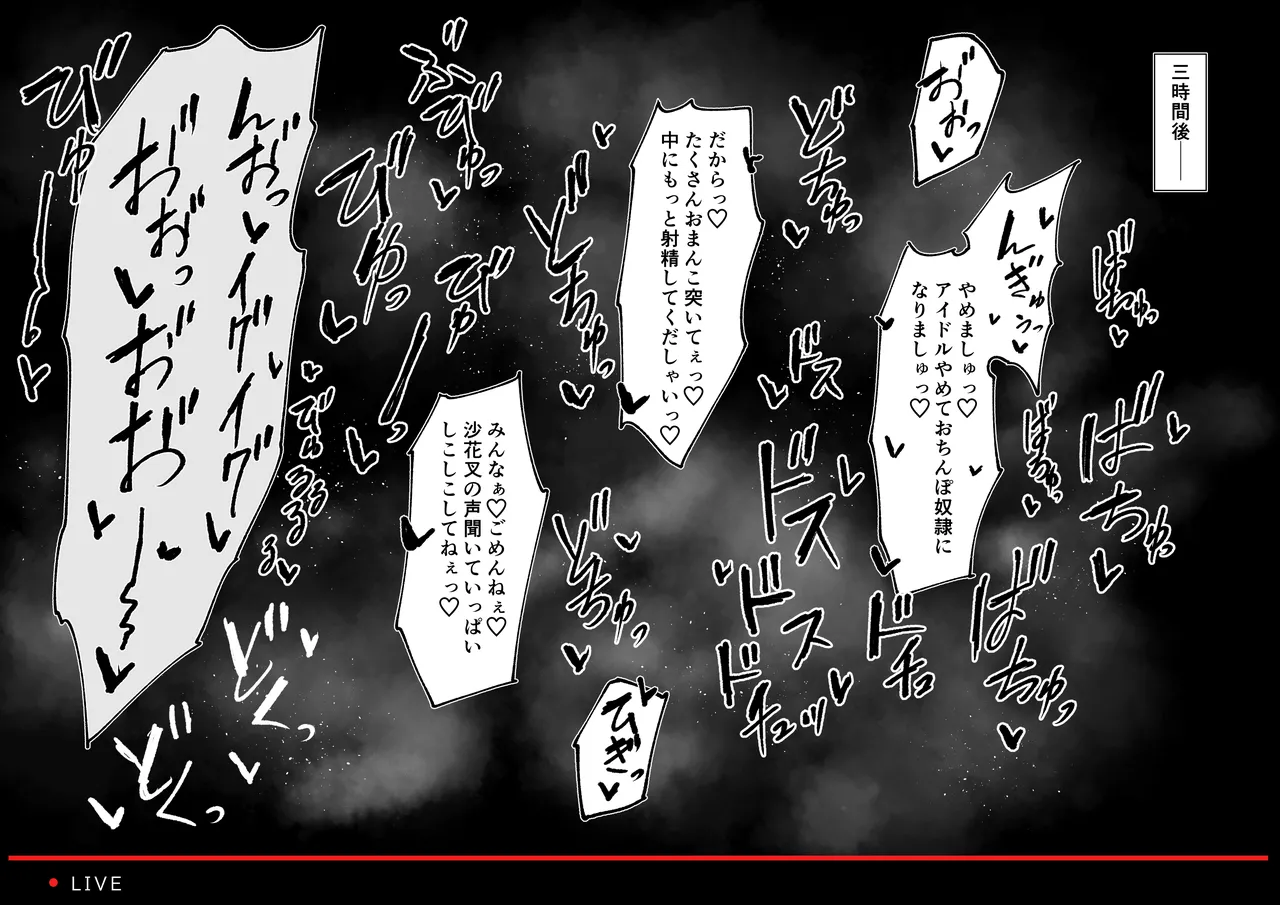 三時間後──
おおっ
んぎゅうっ
やめましゅっ♡
アイドルやめておちんぽ奴隷に
なりましゅっ♡
ばちゅっ
ばちゅっ
ばちゅっ
ばちゅっ
どちゅっ
ドス
ドスドス
ドチュ
ドチュッ
だからっ♡
たくさんおまんこ突いてぇっ♡
中にもっと射精してくだしゃいっ♡
どちゅっ
どちゅっ
ひぎっ
みんなぁ♡ごめんねぇ♡
沙花叉の声聞いていっぱい
しこしこしてねぇっ♡
ぶびゅっ
びゅっ
びゅーっ
びゅるるるる
んおっ♡イグイグ
おおっおおお
びゅーっ
どくっ
どくっ
LIVE